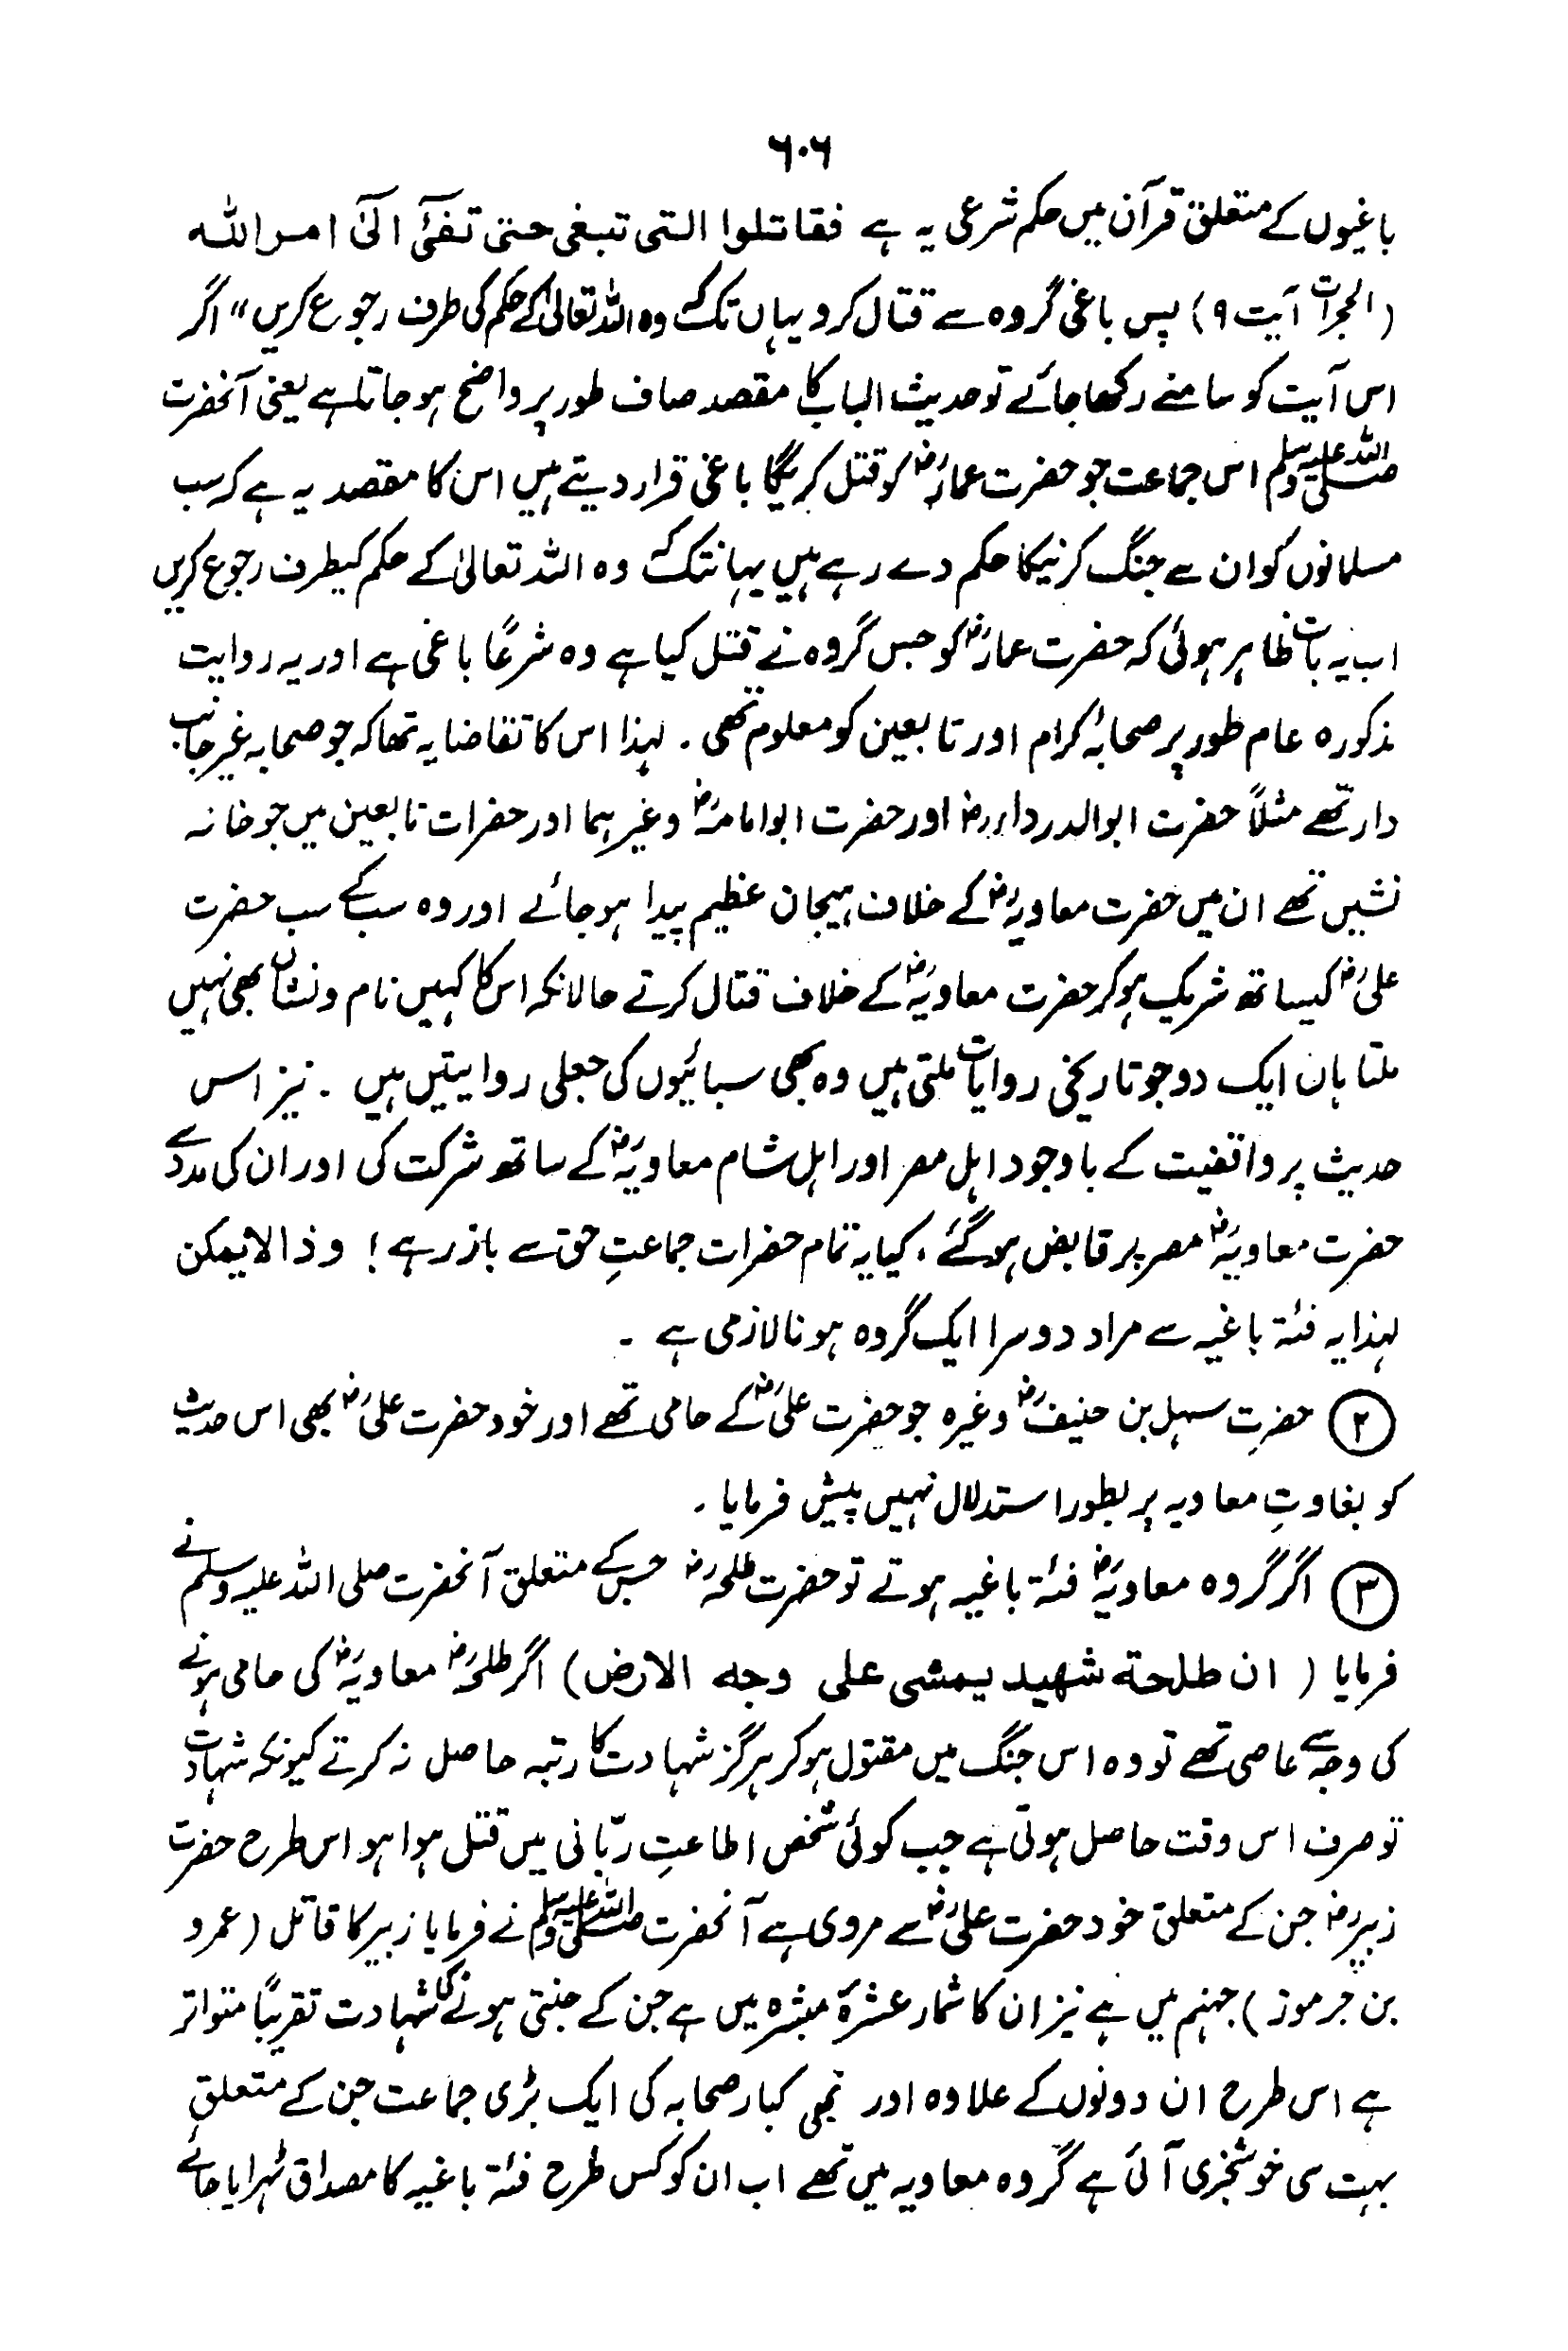 ٦٠٦
باغیوں کے متعلق قرآن میں حکم شرعی یہ ہے فقاتلوا التی تبغی حتی تفئَ الیٰ امر اللہ
(الحجرات آیت ٩) پس باغی گروہ سے قتال کرو یہاں تک کہ وہ اللہ تعالیٰ کے حکم کی طرف رجوع کریں" اگر
اس آیت کو سامنے رکھا جائے تو حدیث الباب کا مقصد صاف طور پر واضح ہو جاتا ہے یعنی آنحضرت
صلی اللہ علیہ وسلم اس جماعت جو حضرت عمارؓ کو قتل کریگا باغی قرار دیتے ہیں اس کا مقصد یہ ہے کہ سب
مسلمانوں کو ان سے جنگ کرنیکا حکم دے رہے ہیں یہانتک کہ وہ اللہ تعالیٰ کے حکم کیطرف رجوع کریں
اب یہ بات ظاہر ہوئی کہ حضرت عمارؓ کو جس گروہ نے قتل کیا ہے وہ شرعًا باغی ہے اور یہ روایت
مذکورہ عام طور پر صحابۂ کرام اور تابعین کو معلوم تھی ۔ لہذا اس کا تقاضا یہ تھا کہ جو صحابہ غیر جانب
دار تھے مثلاً حضرت ابوالدرداءؓ اور حضرت ابوامامہؓ وغیرہما اور حضرات تابعین میں جو خانہ
نشیں تھے ان میں حضرت معاویہؓ کے خلاف ہیجان عظیم پیدا ہو جائے اور وہ سب کے سب حضرت
علیؓ کیساتھ شریک ہو کر حضرت معاویہؓ کے خلاف قتال کرتے حالانکہ اس کا کہیں نام و نشان بھی نہیں
ملتا ہاں ایک دو جو تاریخی روایات ملتی ہیں وہ بھی سبائیوں کی جعلی روایتیں ہیں ۔ نیز اس
حدیث پر واقفیت کے باوجود اہل مصر اور اہل شام معاویہؓ کے ساتھ شرکت کی اور ان کی مدد سے
حضرت معاویہؓ مصر پر قابض ہو گئے ، کیا یہ تمام حضرات جماعتِ حق سے باز رہے ! وذا لا یمکن
لہذا یہ فئۃ باغیہ سے مراد دوسرا ایک گروہ ہونا لازمی ہے ۔
(٢) حضرتِ سہل بن حنیفؓ وغیرہ جو حضرت علیؓ کے حامی تھے اور خود حضرت علیؓ بھی اس حدیث
کو بغاوتِ معاویہ پر بطور استدلال نہیں پیش فرمایا ۔
(٣) اگر گروہ معاویہؓ فئۃ باغیہ ہوتے تو حضرت طلحہؓ جس کے متعلق آنحضرت صلی اللہ علیہ وسلم نے
فرمایا ( ان طلحۃ شھید یمشی علی وجہ الارض) اگر طلحہؓ معاویہؓ کی حامی ہونے
کی وجہ سے عاصی تھے تو وہ اس جنگ میں مقتول ہو کر ہرگز شہادت کا رتبہ حاصل نہ کرتے کیونکہ شہادت
تو صرف اس وقت حاصل ہوتی ہے جب کوئی شخص اطاعتِ ربّانی میں قتل ہوا ہو اس طرح حضرت
زبیرؓ جن کے متعلق خود حضرت علیؓ سے مروی ہے آنحضرت صلی اللہ علیہ وسلم نے فرمایا زبیر کا قاتل (عمرو
بن جرموز ) جہنم میں ہے نیز ان کا شمار عشرۂ مبشرہ میں ہے جن کے جنتی ہونے کا شہادت تقریباً متواتر
ہے اس طرح ان دونوں کے علاوہ اور بھی کبار صحابہ کی ایک بڑی جماعت جن کے متعلق
بہت سی خوشخبری آئی ہے گروہ معاویہ میں تھے اب ان کو کس طرح فئۃ باغیہ کا مصداق ٹہرایا جائے